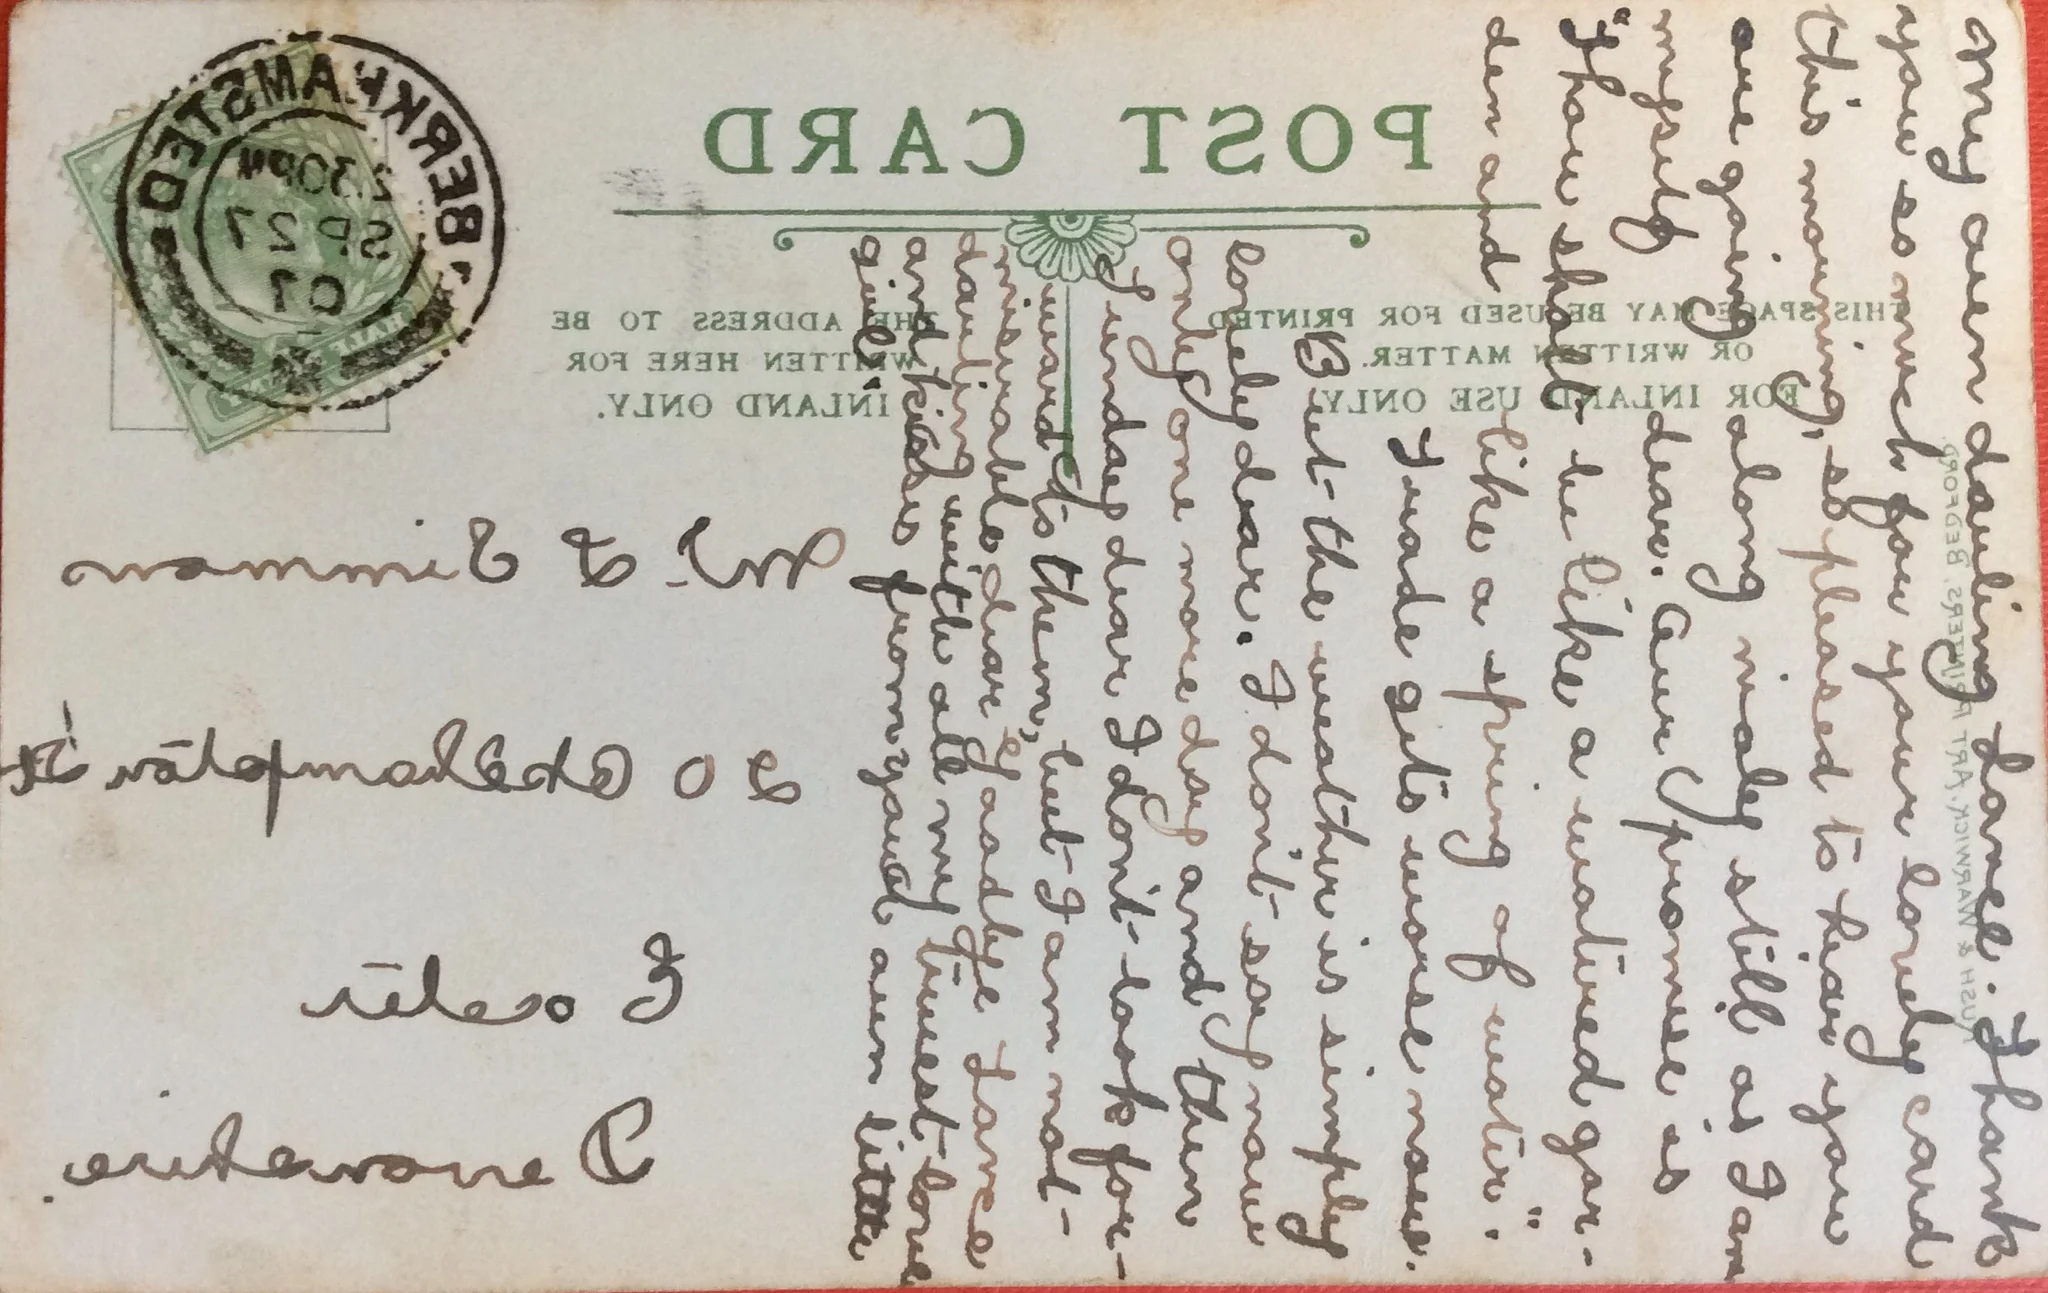 POST CARD
THIS SPACE MAY BE USED FOR PRINTED
OR WRITTEN MATTER.
FOR INLAND USE ONLY
THE ADDRESS TO BE
WRITTEN HERE FOR
INLAND ONLY.
BERKHAMSTED
2.30PM
SP 27
07
My own darling Lance. Thank
you so much for your lovely card
this morning, so pleased to hear you
are going along nicely still as I am
myself dear. Our promise is
"Thou shalt be like a watered gar-
den and like a spring of water."
Trade gets worse now.
But the weather is simply
lovely dear. I don't say now
only one more day and then
Sunday dear I don't look for-
ward to them, but I am not
miserable dear. Goodbye Lance
darling with all my truest love
and kisses from your own little
girl.
Mr. L
20 Okehampton St
Exeter
Devonshire.
RUSH & WARWICK, ART PRINTERS, BEDFORD.